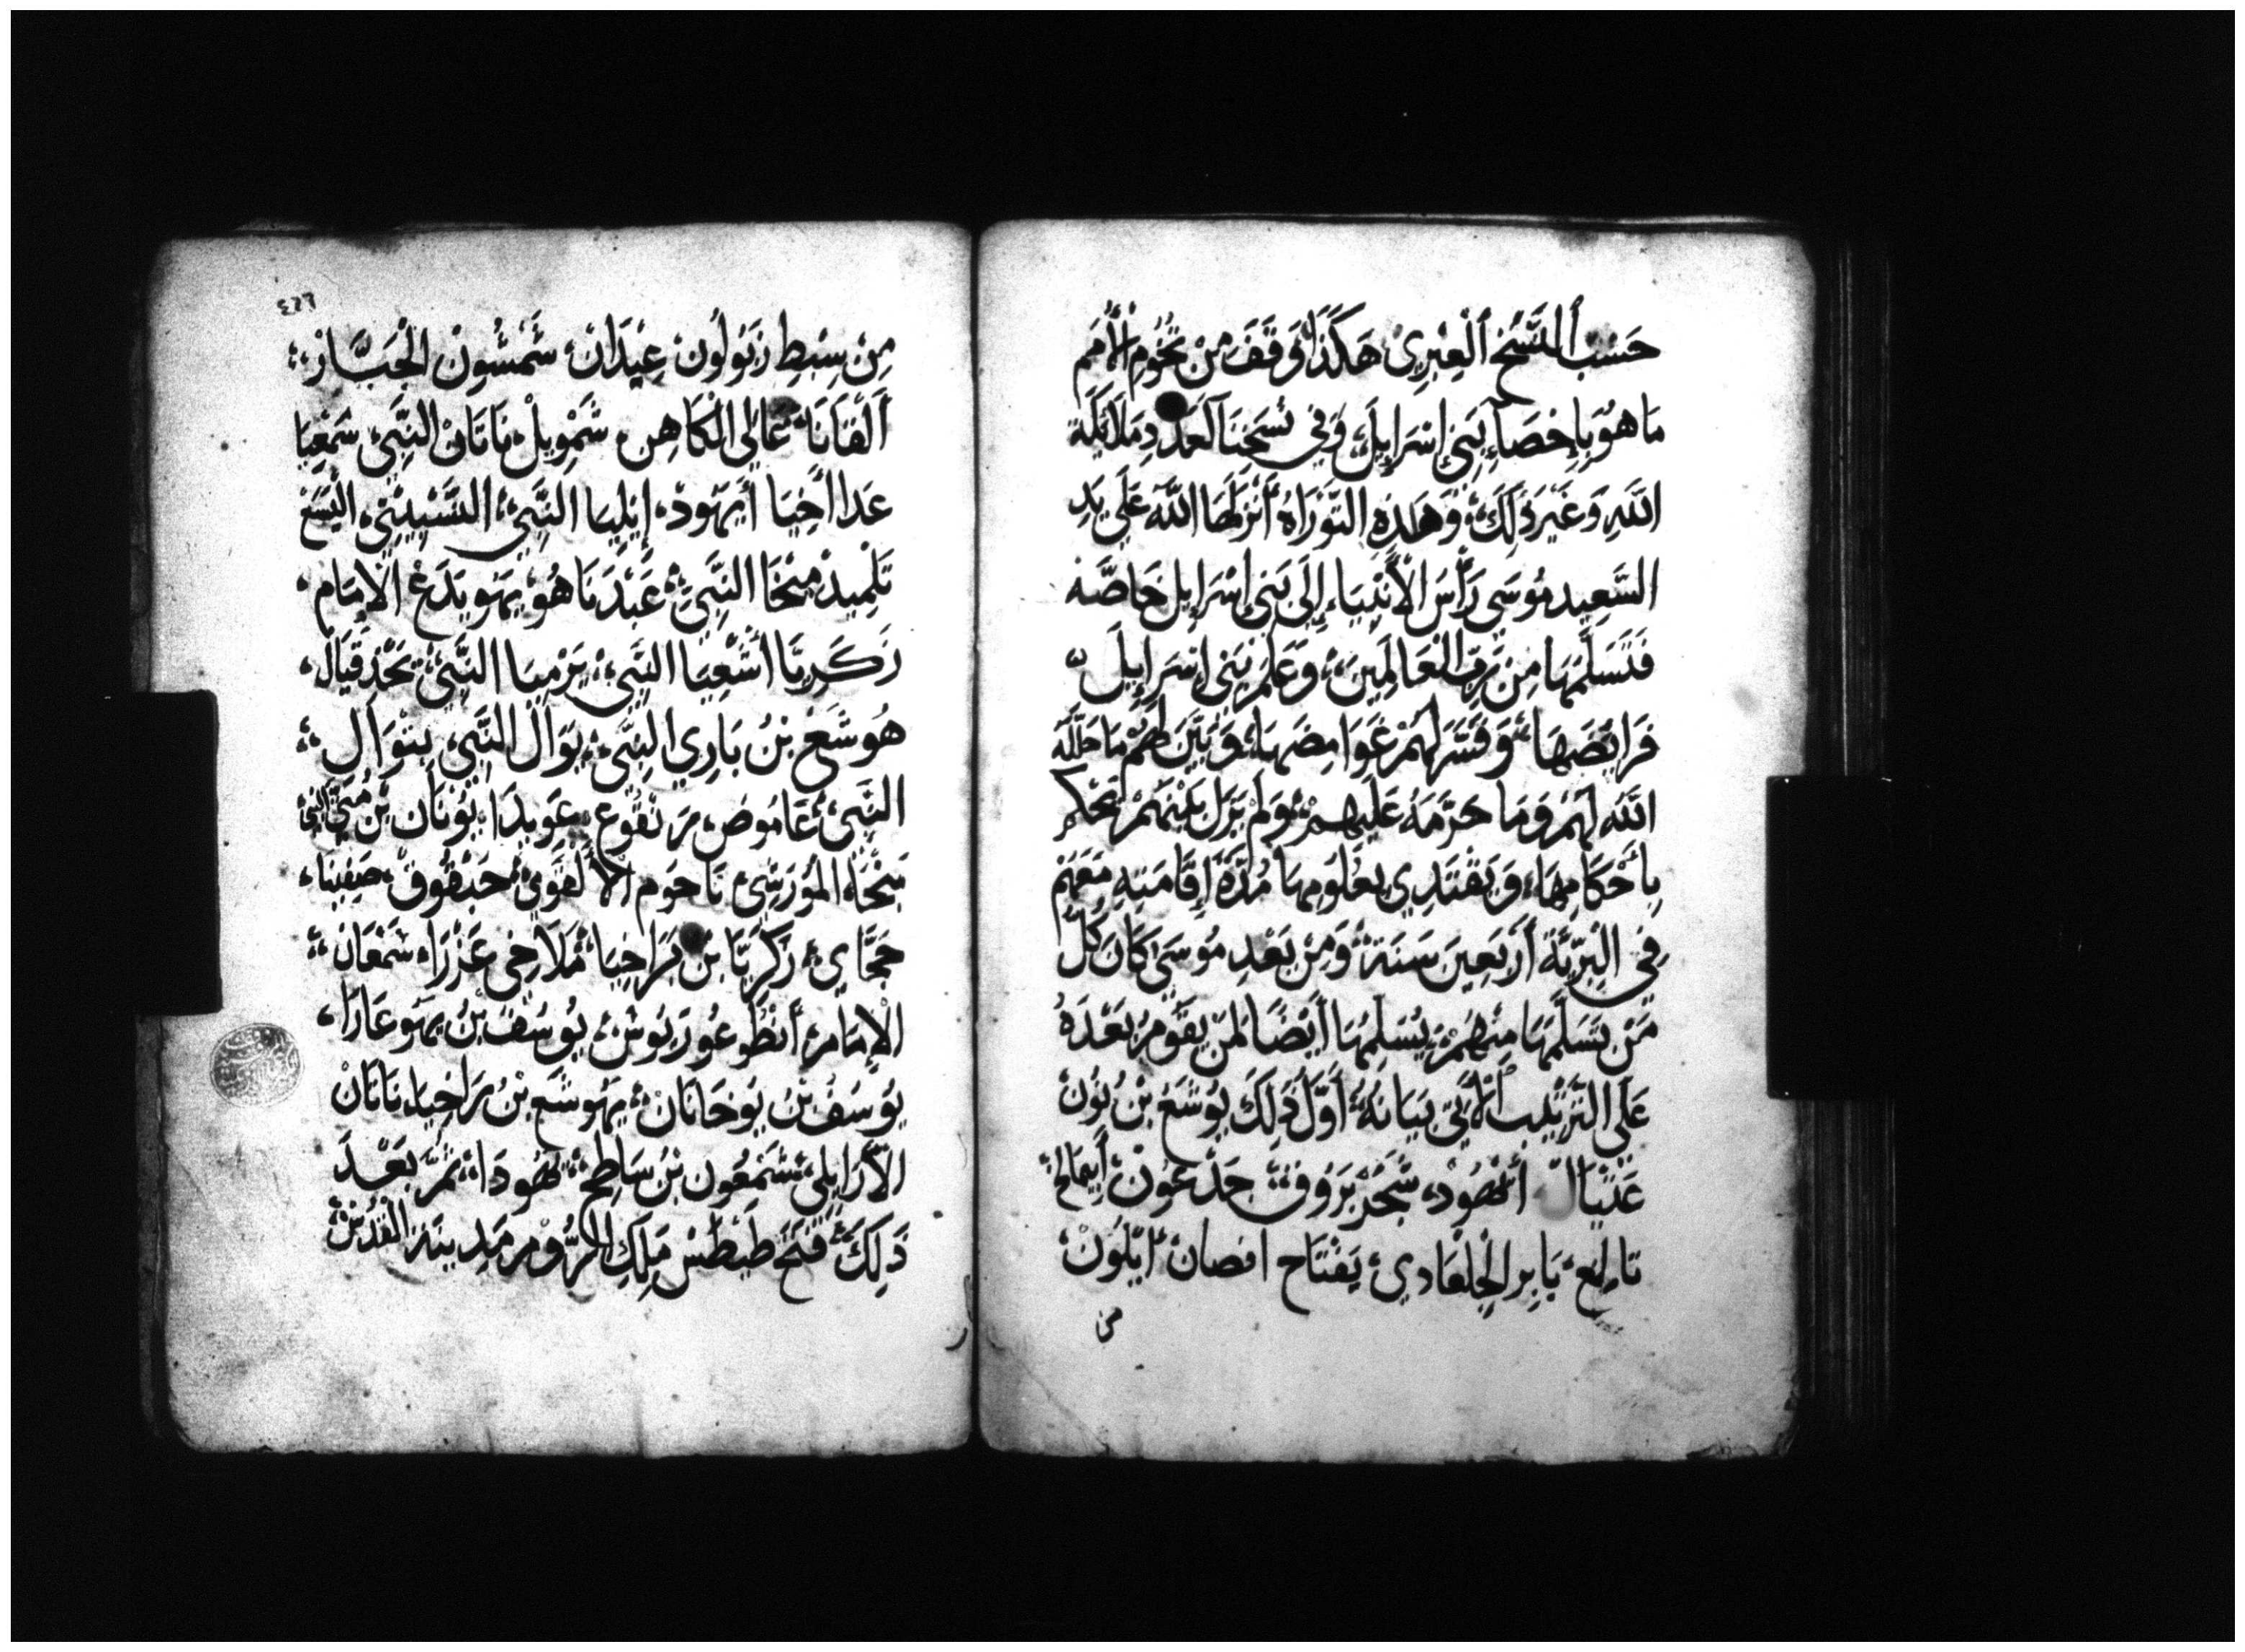 حَسْبَ النُّسَخِ الْعِبْرِيِّ هَكَذَا وَقَفَ مِنْ تُخُومِ الأُمَمِ
مَا هُوَ بِإِحْصَاءِ بَنِي إِسْرَايِلَ، وَفِي نُسَخِنَا الْعَدَدِ مَلَائِكَةِ
اللَّهِ وَغَيْرَ ذَلِكَ، وَهَذِهِ التَّوْرَاةُ أَنْزَلَهَا اللَّهُ عَلَى يَدِ
السَّعِيدِ مُوسَى رَأْسَ الأَنْبِيَاءِ إِلَى بَنِي إِسْرَايِل خَاصَّه
فَتَسَلَّمَهَا مِنْ رَبِّ الْعَالَمِينَ، وَعَلَّمَ بَنِي إِسْرَايِيلَ
فَرَايِضَهَا، وَفَسَّرَ لَهُمْ غَوَامِضَهَا، وَبَيَّنَ لَهُمْ مَا حَلَّلَهُ
اللَّهُ لَهُمْ وَمَا حَرَّمَهُ عَلَيْهِمْ، وَلَمْ يَزَلْ بَيْنَهُمْ يَحْكُمُ
بِأَحْكَامِهَا، وَيَقْتَدِي بِعُلُومِهَا مُدَّةَ إِقَامَتِهِ مَعَهُمْ
فِي الْبَرِّيَّةِ أَرْبَعِينَ سَنَةً، وَمِنْ بَعْدِ مُوسَى كَانَ كُلُّ
مَنْ تَسَلَّمَهَا مِنْهُمْ، يُسَلِّمُهَا أَيْضًا لِمَنْ يَقُومُ بَعْدَهُ
عَلَى التَّرْتِيبِ الآتِي بَيَانُهُ، أَوَّلُ ذَلِكَ يُوشَعُ بْنُ نُونْ
عَثْنِيَالْ أَهُودْ، شَجَرْ بَرَوُقْ، جَدْعُونْ، أَبِيمَالِخْ
تَالِعْ، يَايِر الْجِلْعَادِي، يَفْتَاح افصان، ايْلُونْ
من
٤٢٦
مِنْ سِبْطِ زَبُولُونْ عِيْدَانْ، شَمْشُونْ الْجَبَّارْ،
أَلْقَانَا، عَالِي الْكَاهِن، شَمْوِيلْ، نَاتَانْ النَّبِيّ، شَمْعِيَا
عَدا أَخِيَا أَيَهُودْ، إِيْلِيَا النَّبِيّ، التَّسْبِيتِيّ، الْيَسَعْ
تَلْمِيذ مِيْخَا النَّبِيّ، عَبْدَنَاهُو، يَهُويَدَعْ الإِمَامْ،
زَكَرِيَّا أَشْعِيَا النَّبِيّ، يَرْمِيَا النَّبِيّ، يَحْذَقِيَالْ،
هُوشَعْ بْنُ بَارِي النَّبِيّ، يوَالْ النَّبِيّ بتوَالِ،
النَّبِيّ، عَامُوصْ، مِرَ تَقُوعْ، عَوبِدَا، يُونَان بْن مَتِّيَ النبي
مِيْخَاه المُورَشِيّ نَاحُوم الأَلْقَوِيّ، حَبْقُوقْ، صَفِينَا،
حَجَّاي، زَكَرِيَّا بْن بَرَاخِيَا، مَلَاخِي عَزْرَا، شَمْعَانْ،
الإِمَامْ، أَنْطُوغُورَيُوشْ، يُوسُفُ بْنُ يَهُوعَازَا،
يُوسُفُ بْنُ يُوحَانَانْ، يَهُوشَعُ بْنُ بَرَاخِيَا، نَاتَانْ
الأَرَايِلِي، شَمْعُون بْنُ سَاطِحْ، يَهُودَا، ثُمَّ بَعْدَ
ذَلِكَ، فَتَحَ طَيْطُسْ مَلِكِ الرُّومْ مَدِينَة الْقُدْسْ،